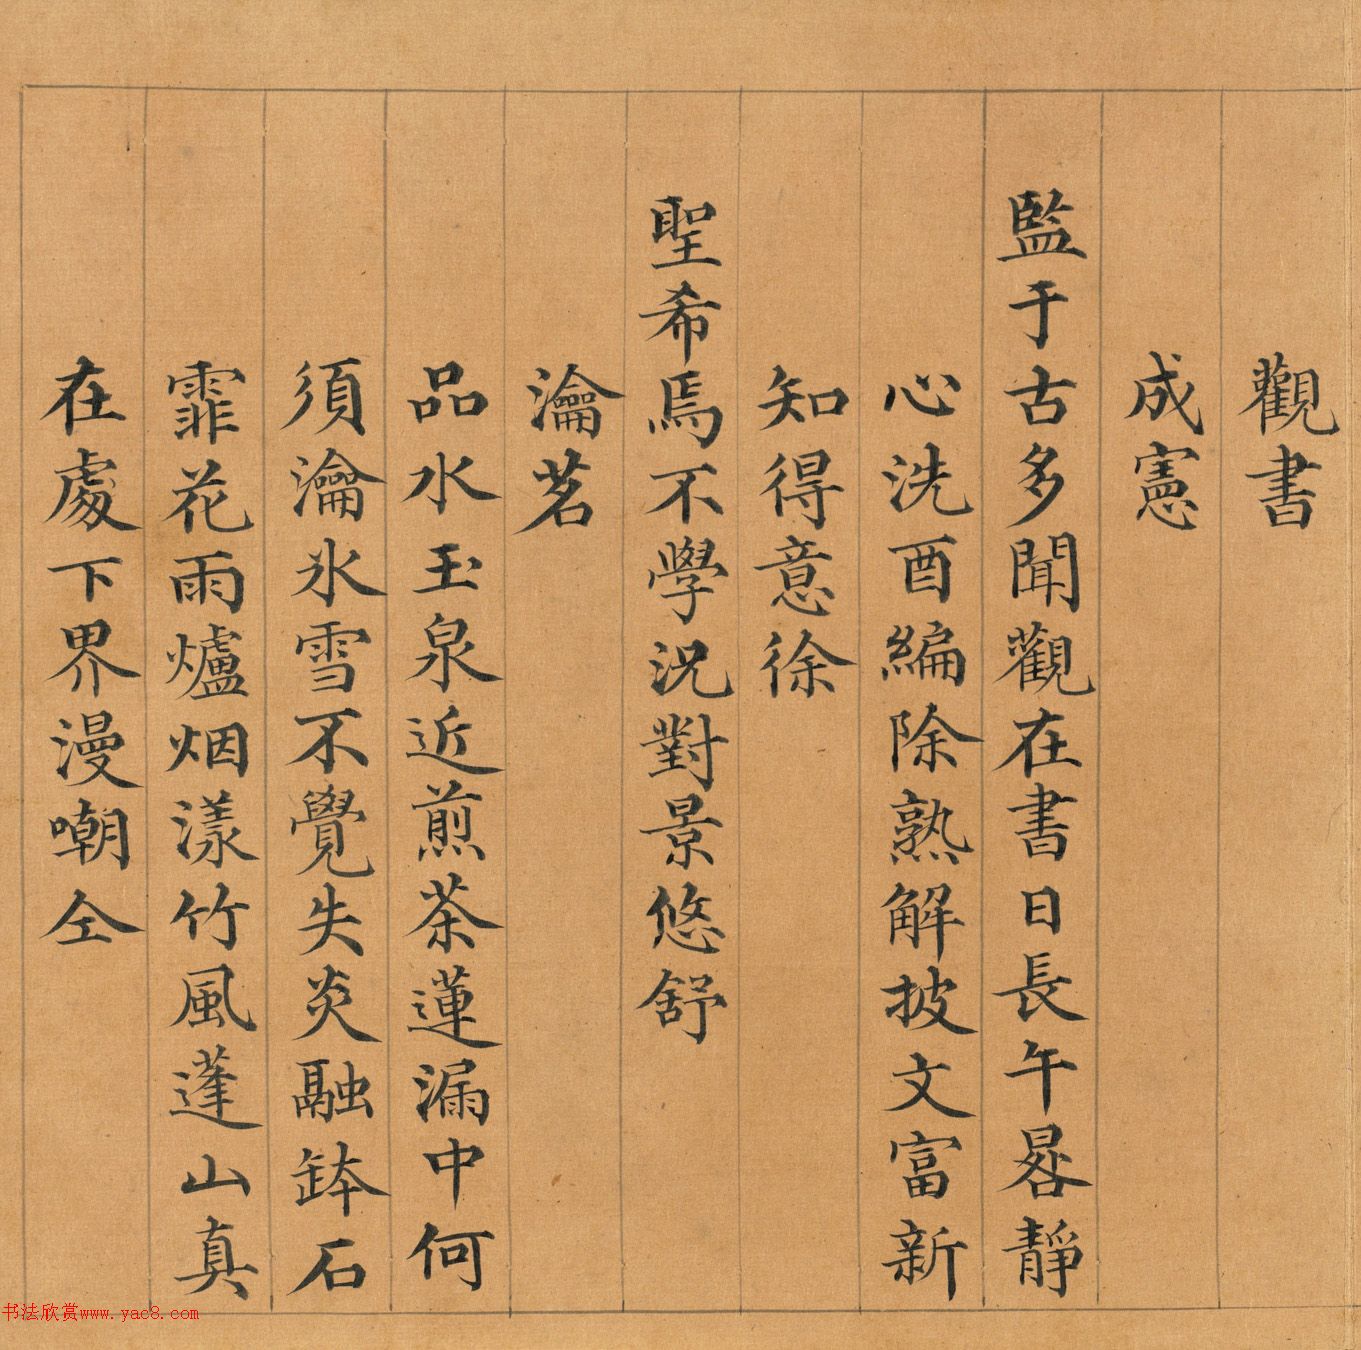 觀書
成憲
監于古多聞觀在書日長午晷靜
心洗酉編除熟解披文富新
知得意徐
聖希焉不學況對景悠舒
瀹茗
品水玉泉近煎茶蓮漏中何
須瀹氷雪不覺失炎融缽石
霏花雨爐烟漾竹風蓬山真
在處下界漫嘲仝
书法欣赏www.yac8.com